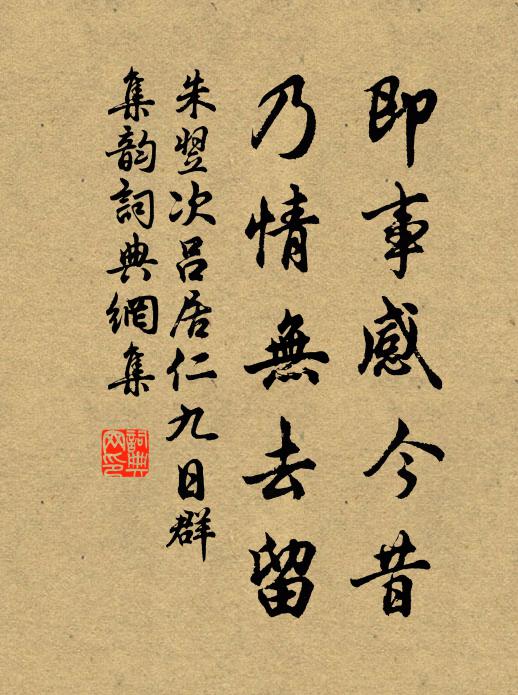 即事感今昔
乃情無去留
朱翌次呂居仁九日群
集韵詞典網集
詞典网印